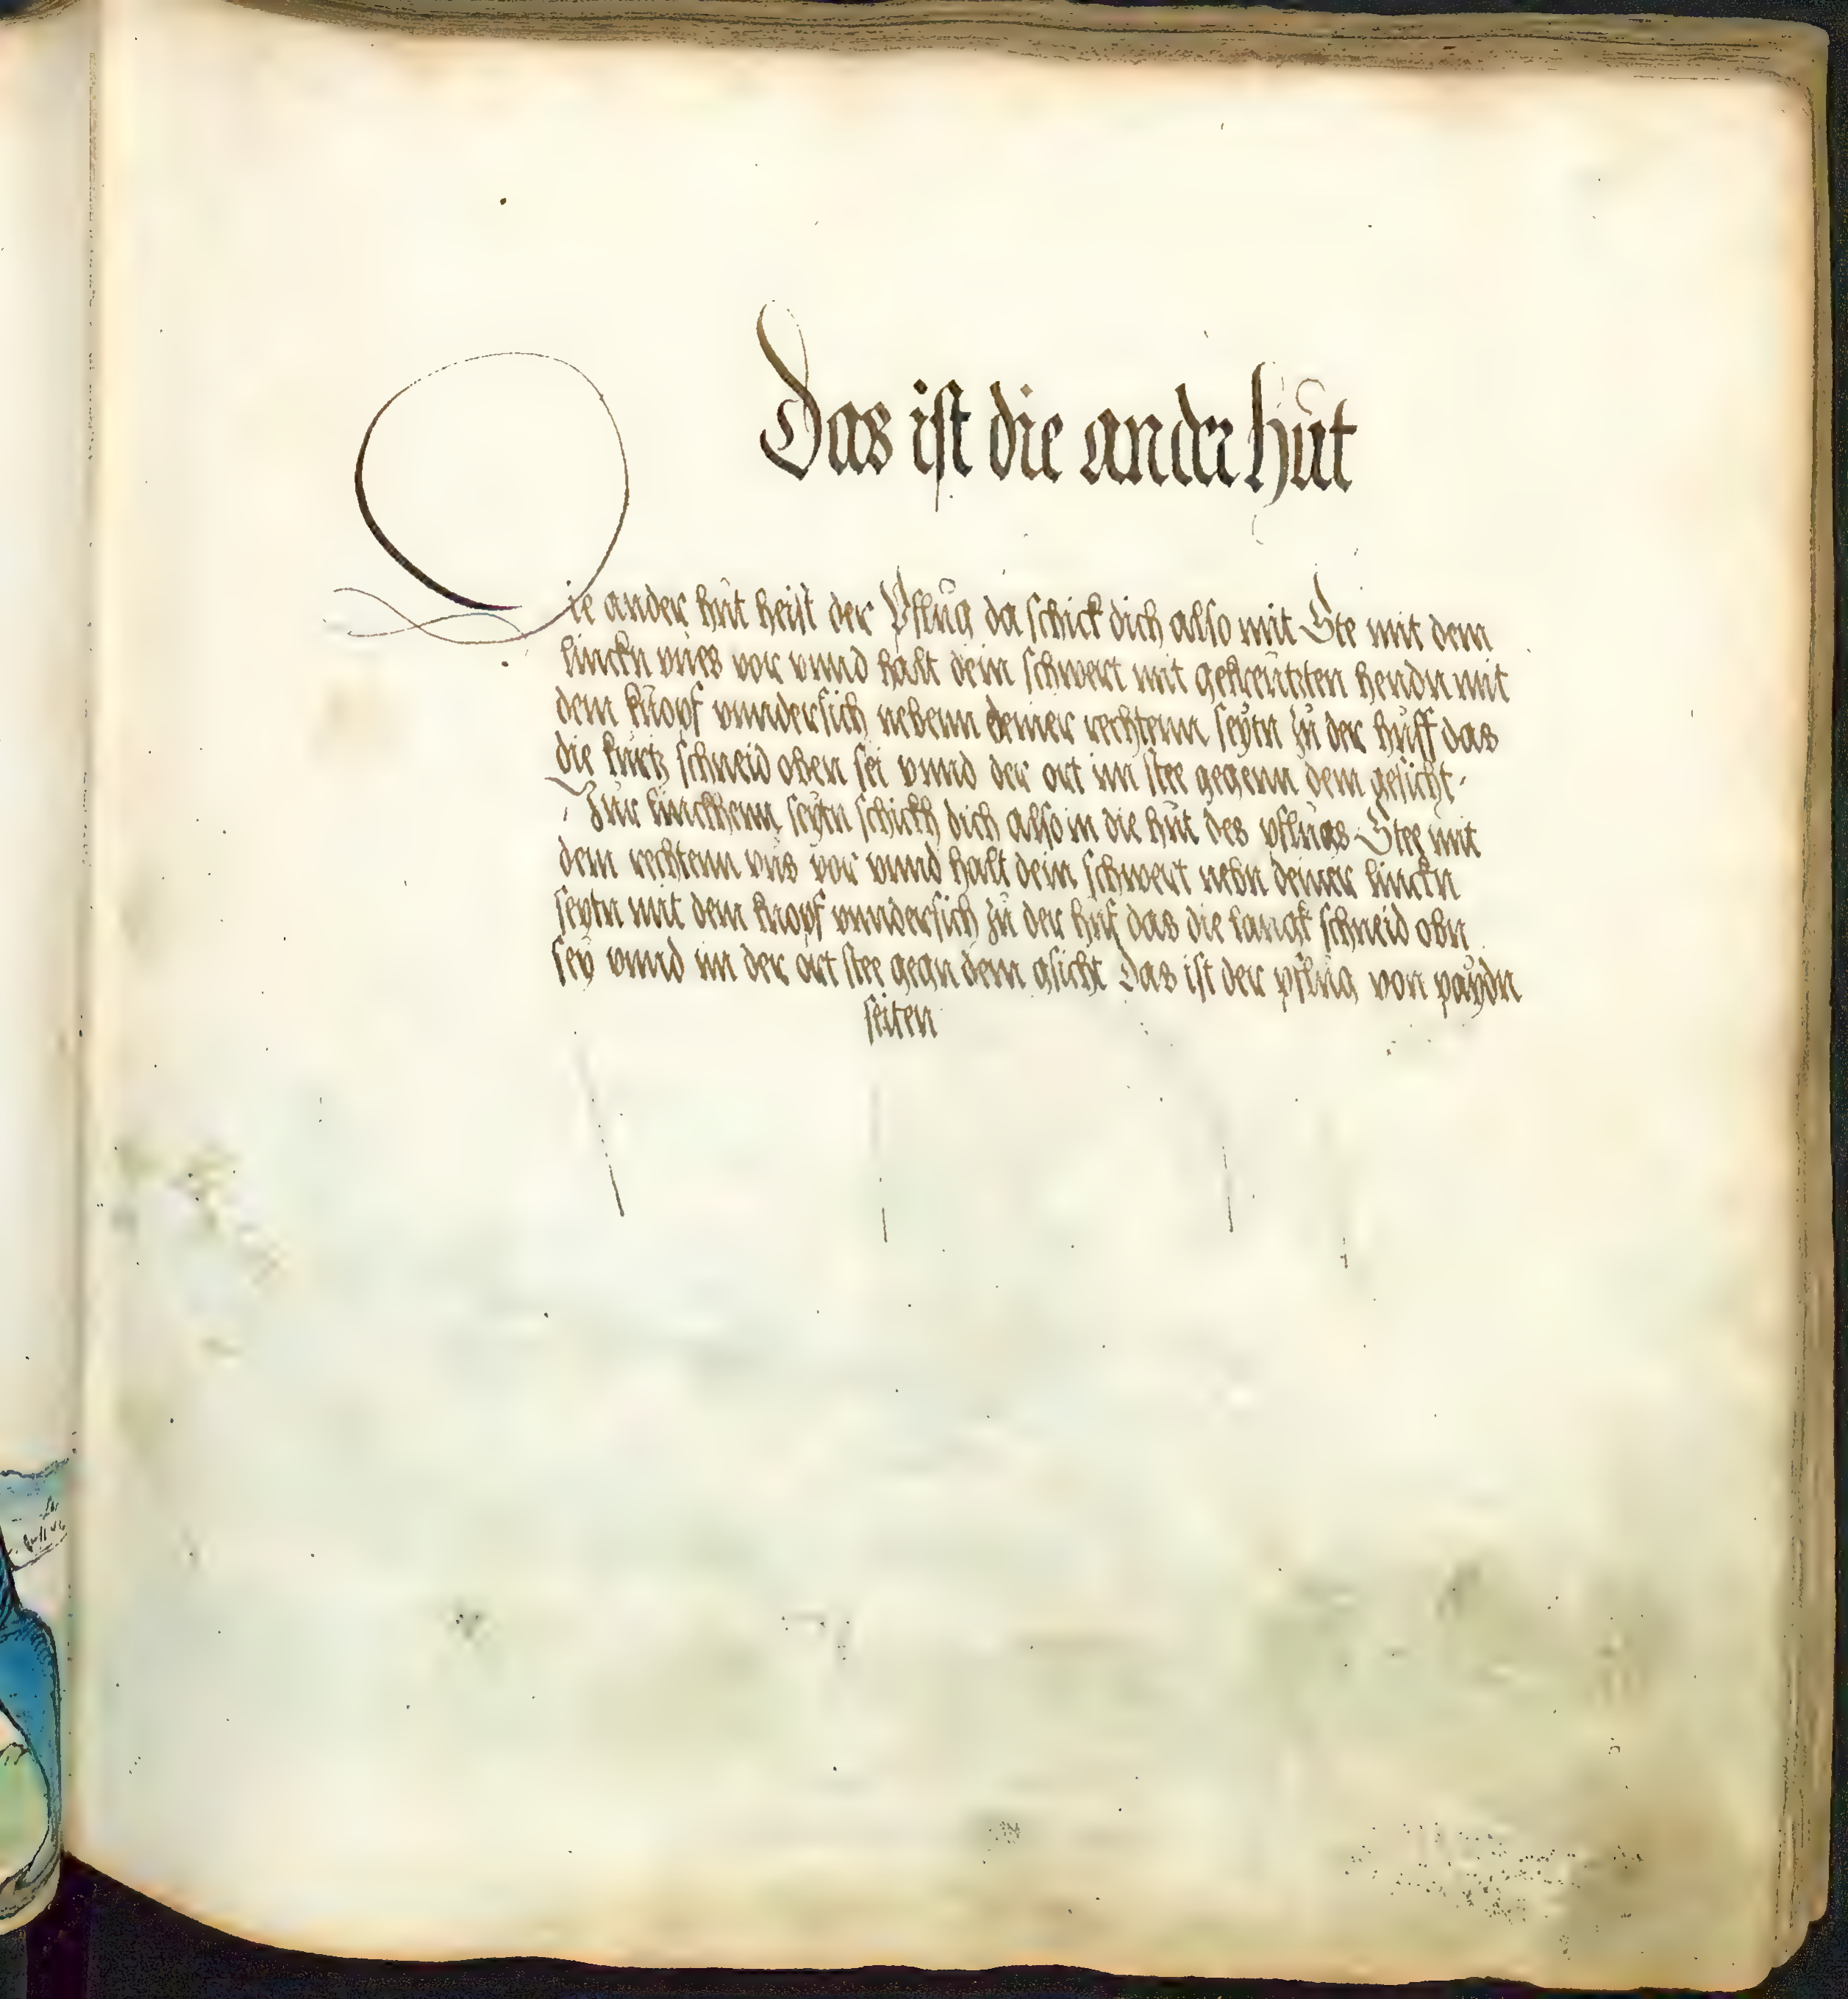 Das ist die ander hut
Die ander hut heist der Pflug da schick dich also mit Ste mit dem
linckn vues vor vnnd halt dein schwert mit gekreutzten hendn mit
dem knopf vnndersich nebenn deiner rechtenn seytn zu der huff das
die kurtz schneid oben sei vnnd der ort im stee gegenn dem gesicht.
Zur linckhenn seytn schickh dich also in die hut des pflugs Stee mit
dem rechtenn vus vor vnnd halt dein schwert nebn deiner linckn
seytn mit dem knopf vnndersich zu der huf das die langk schneid obn
sey vnnd im der ort stee gegn dem gsicht Das ist der pflug von paydn
seiten